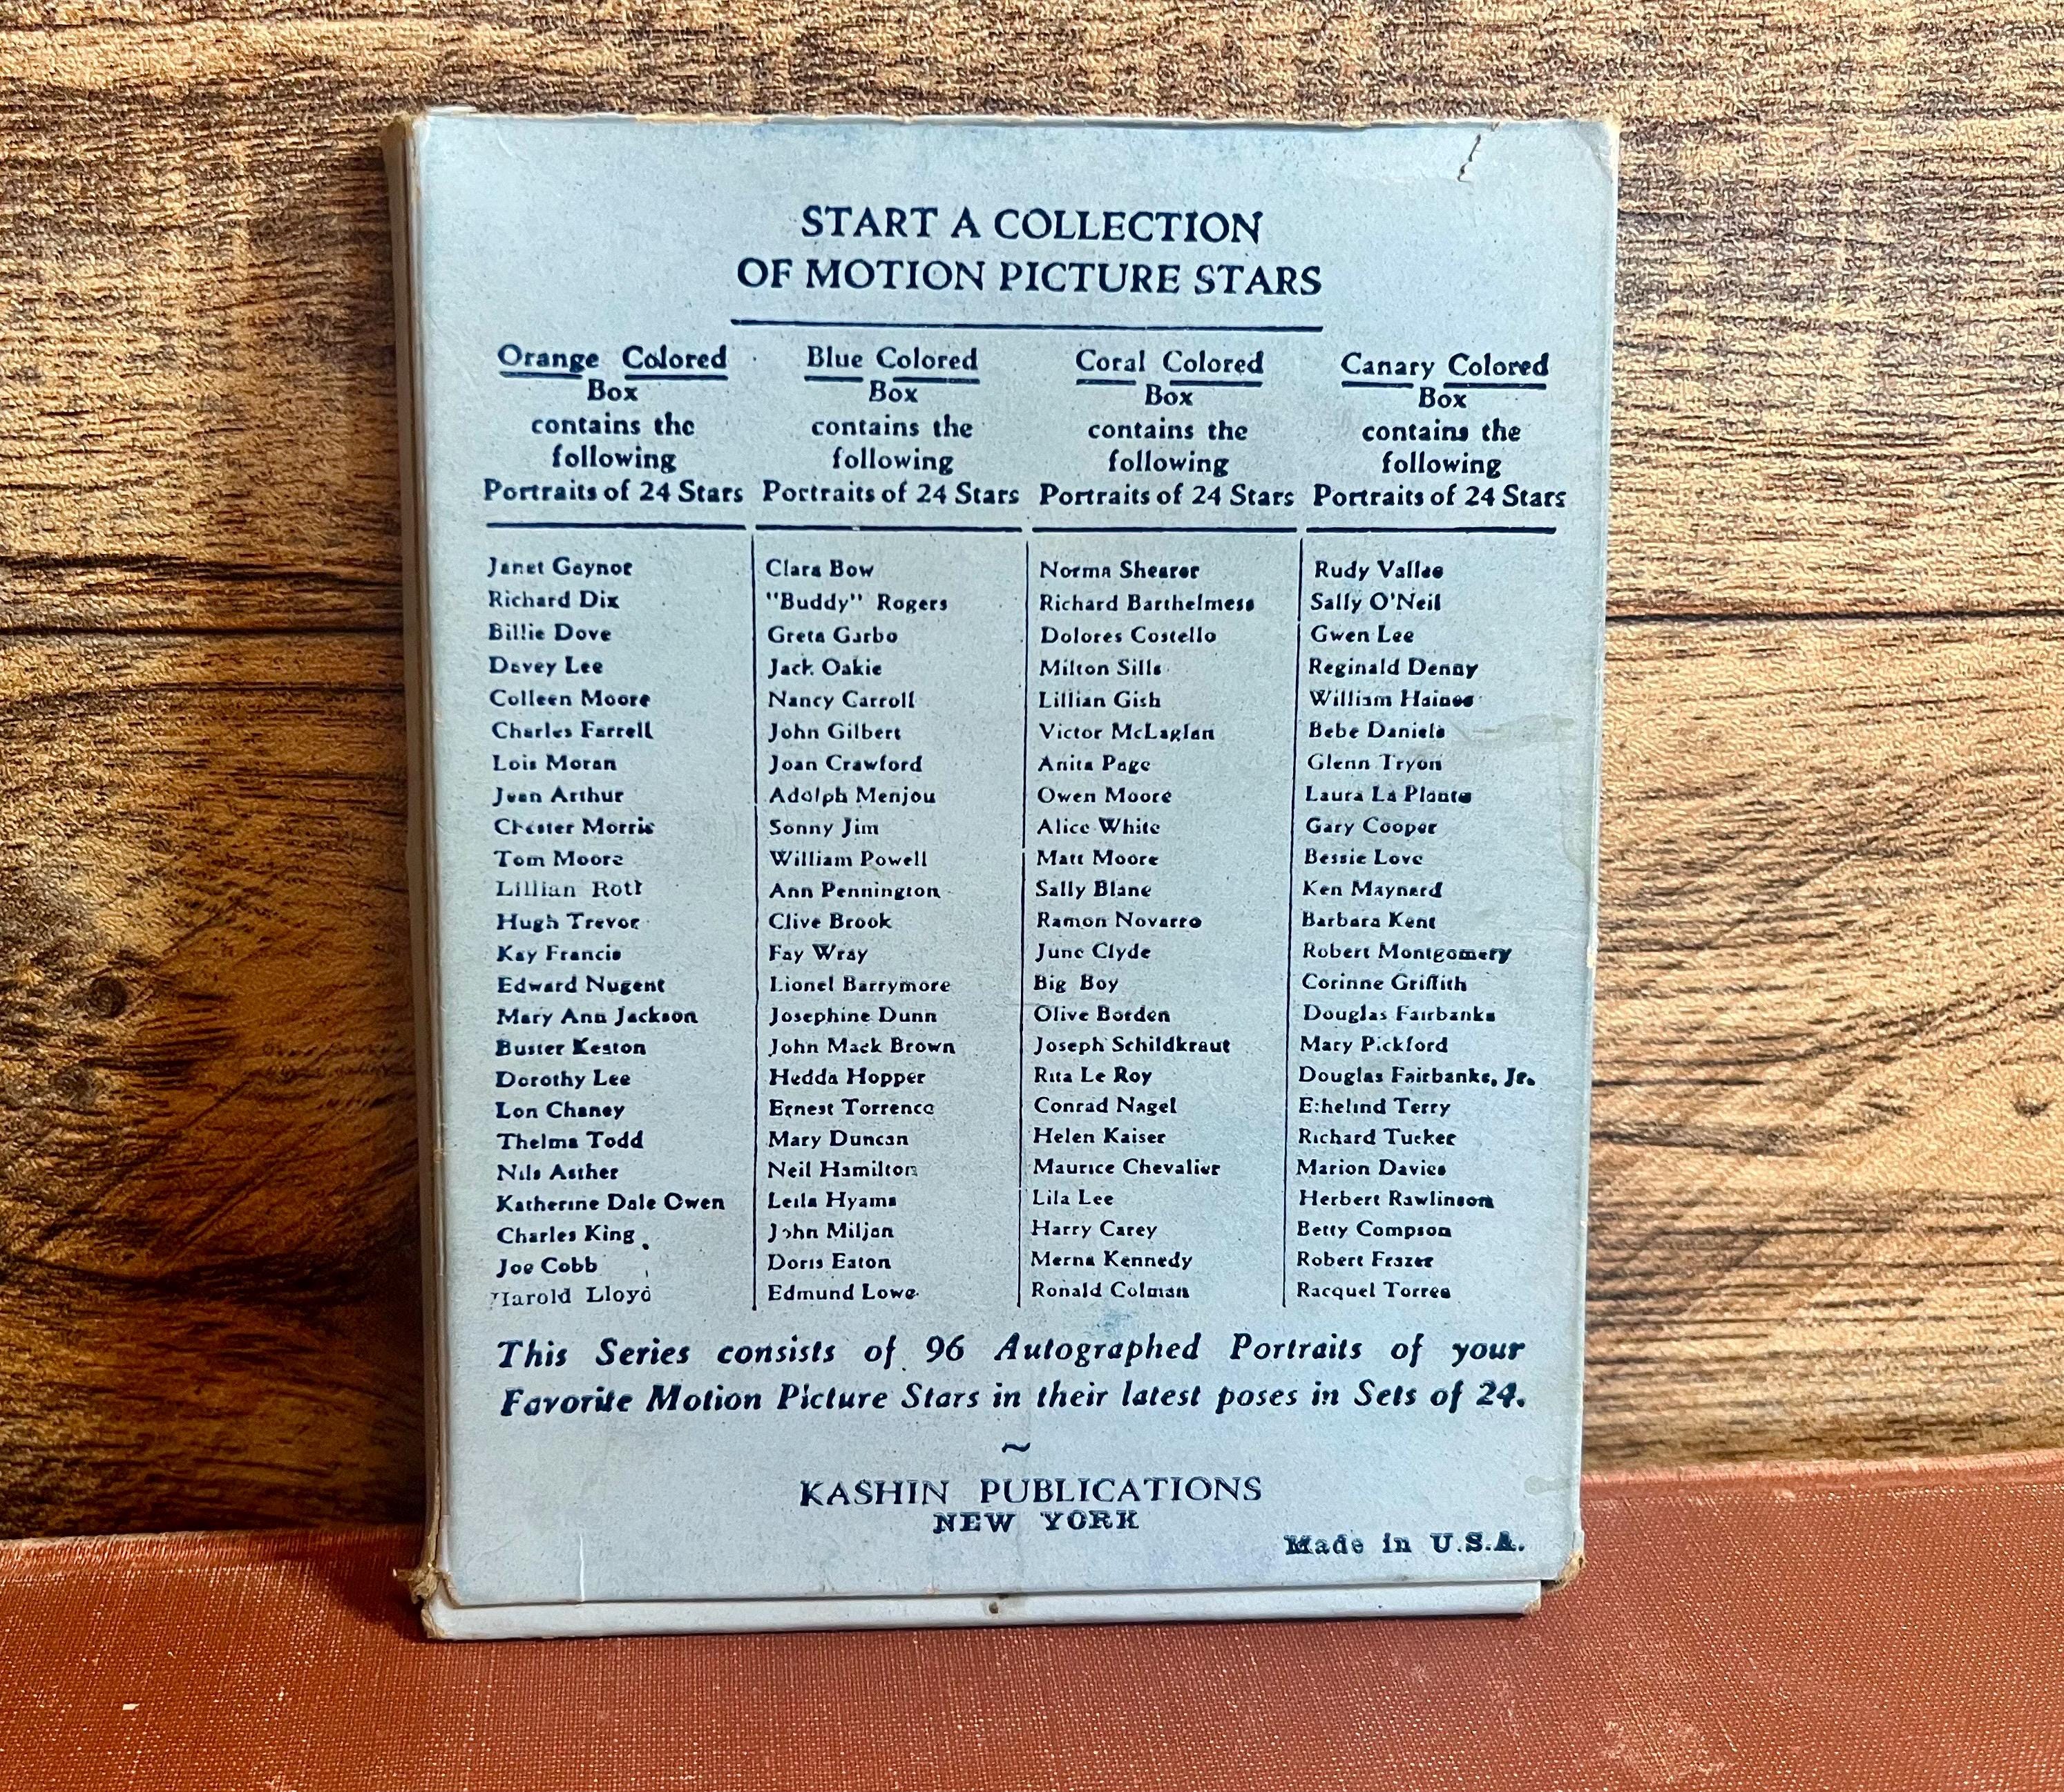 START A COLLECTION
OF MOTION PICTURE STARS
Orange Colored
Box
contains the
following
Portraits of 24 Stars
Janet Gaynor
Richard Dix
Billie Dove
Davey Lee
Colleen Moore
Charles Farrell
Lois Moran
Jean Arthur
Chester Morris
Tom Moore
Lillian Roth
Hugh Trevor
Kay Francis
Edward Nugent
Mary Ann Jackson
Buster Keaton
Dorothy Lee
Lon Chaney
Thelma Todd
Nils Asther
Katherine Dale Owen
Charles King
Joe Cobb
Harold Lloyd
Blue Colored
Box
contains the
following
Portraits of 24 Stars
Clara Bow
"Buddy" Rogers
Greta Garbo
Jack Oakie
Nancy Carroll
John Gilbert
Joan Crawford
Adolph Menjou
Sonny Jim
William Powell
Ann Pennington
Clive Brook
Fay Wray
Lionel Barrymore
Josephine Dunn
John Mack Brown
Hedda Hopper
Ernest Torrence
Mary Duncan
Neil Hamilton
Leila Hyams
John Miljan
Doris Eaton
Edmund Lowe
Coral Colored
Box
contains the
following
Portraits of 24 Stars
Norma Shearer
Richard Barthelmess
Dolores Costello
Milton Sills
Lillian Gish
Victor McLaglan
Anita Page
Owen Moore
Alice White
Matt Moore
Sally Blane
Ramon Novarro
June Clyde
Big Boy
Olive Borden
Joseph Schildkraut
Rita Le Roy
Conrad Nagel
Helen Kaiser
Maurice Chevalier
Lila Lee
Harry Carey
Merna Kennedy
Ronald Colman
Canary Colored
Box
contains the
following
Portraits of 24 Stars
Rudy Vallee
Sally O'Neil
Gwen Lee
Reginald Denny
William Haines
Bebe Daniels
Glenn Tryon
Laura La Plante
Gary Cooper
Bessie Love
Ken Maynard
Barbara Kent
Robert Montgomery
Corinne Griffith
Douglas Fairbanks
Mary Pickford
Douglas Fairbanks, Jr.
Ethelind Terry
Richard Tucker
Marion Davies
Herbert Rawlinson
Betty Compson
Robert Frazer
Racquel Torres
This Series consists of 96 Autographed Portraits of your
Favorite Motion Picture Stars in their latest poses in Sets of 24.
~
KASHIN PUBLICATIONS
NEW YORK
Made in U.S.A.